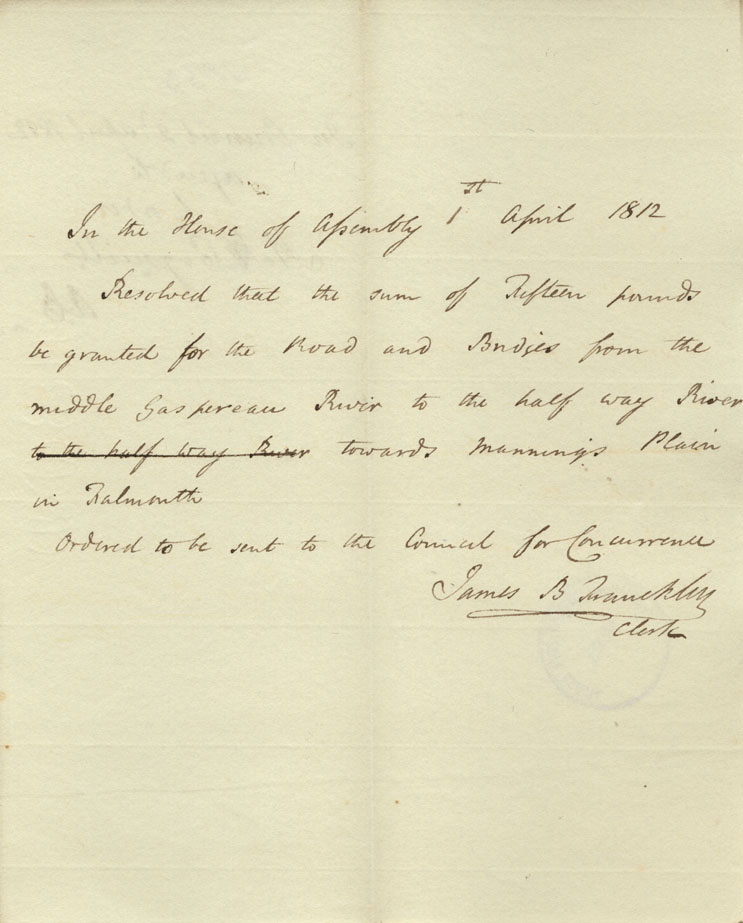 In the House of Assembly 1st April 1812
Resolved that the sum of Fifteen pounds
be granted for the Road and Bridges from the
middle Gaspereau River to the half way River
to the half way River towards Mannings Plain
in Falmouth
Ordered to be sent to the Council for Concurrence
James B Franckley
Clerk